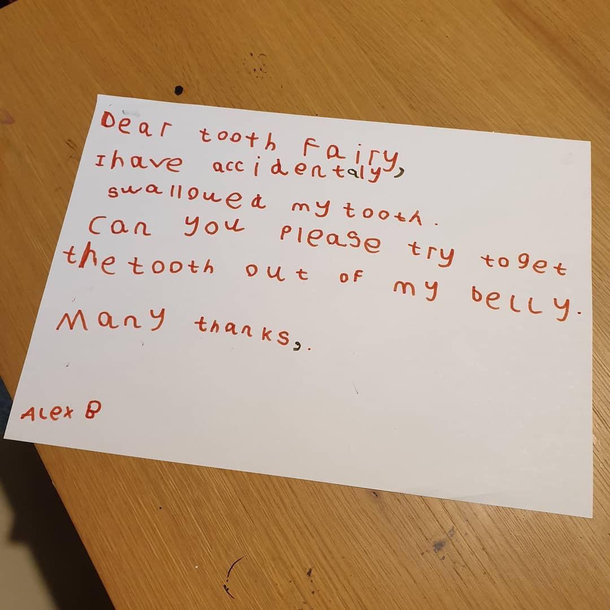 Dear tooth Fairy,
I have accidentaly,
swalloued my tooth.
Can you please try to get
the tooth out of my belly.
Many thanks,.
Alex B